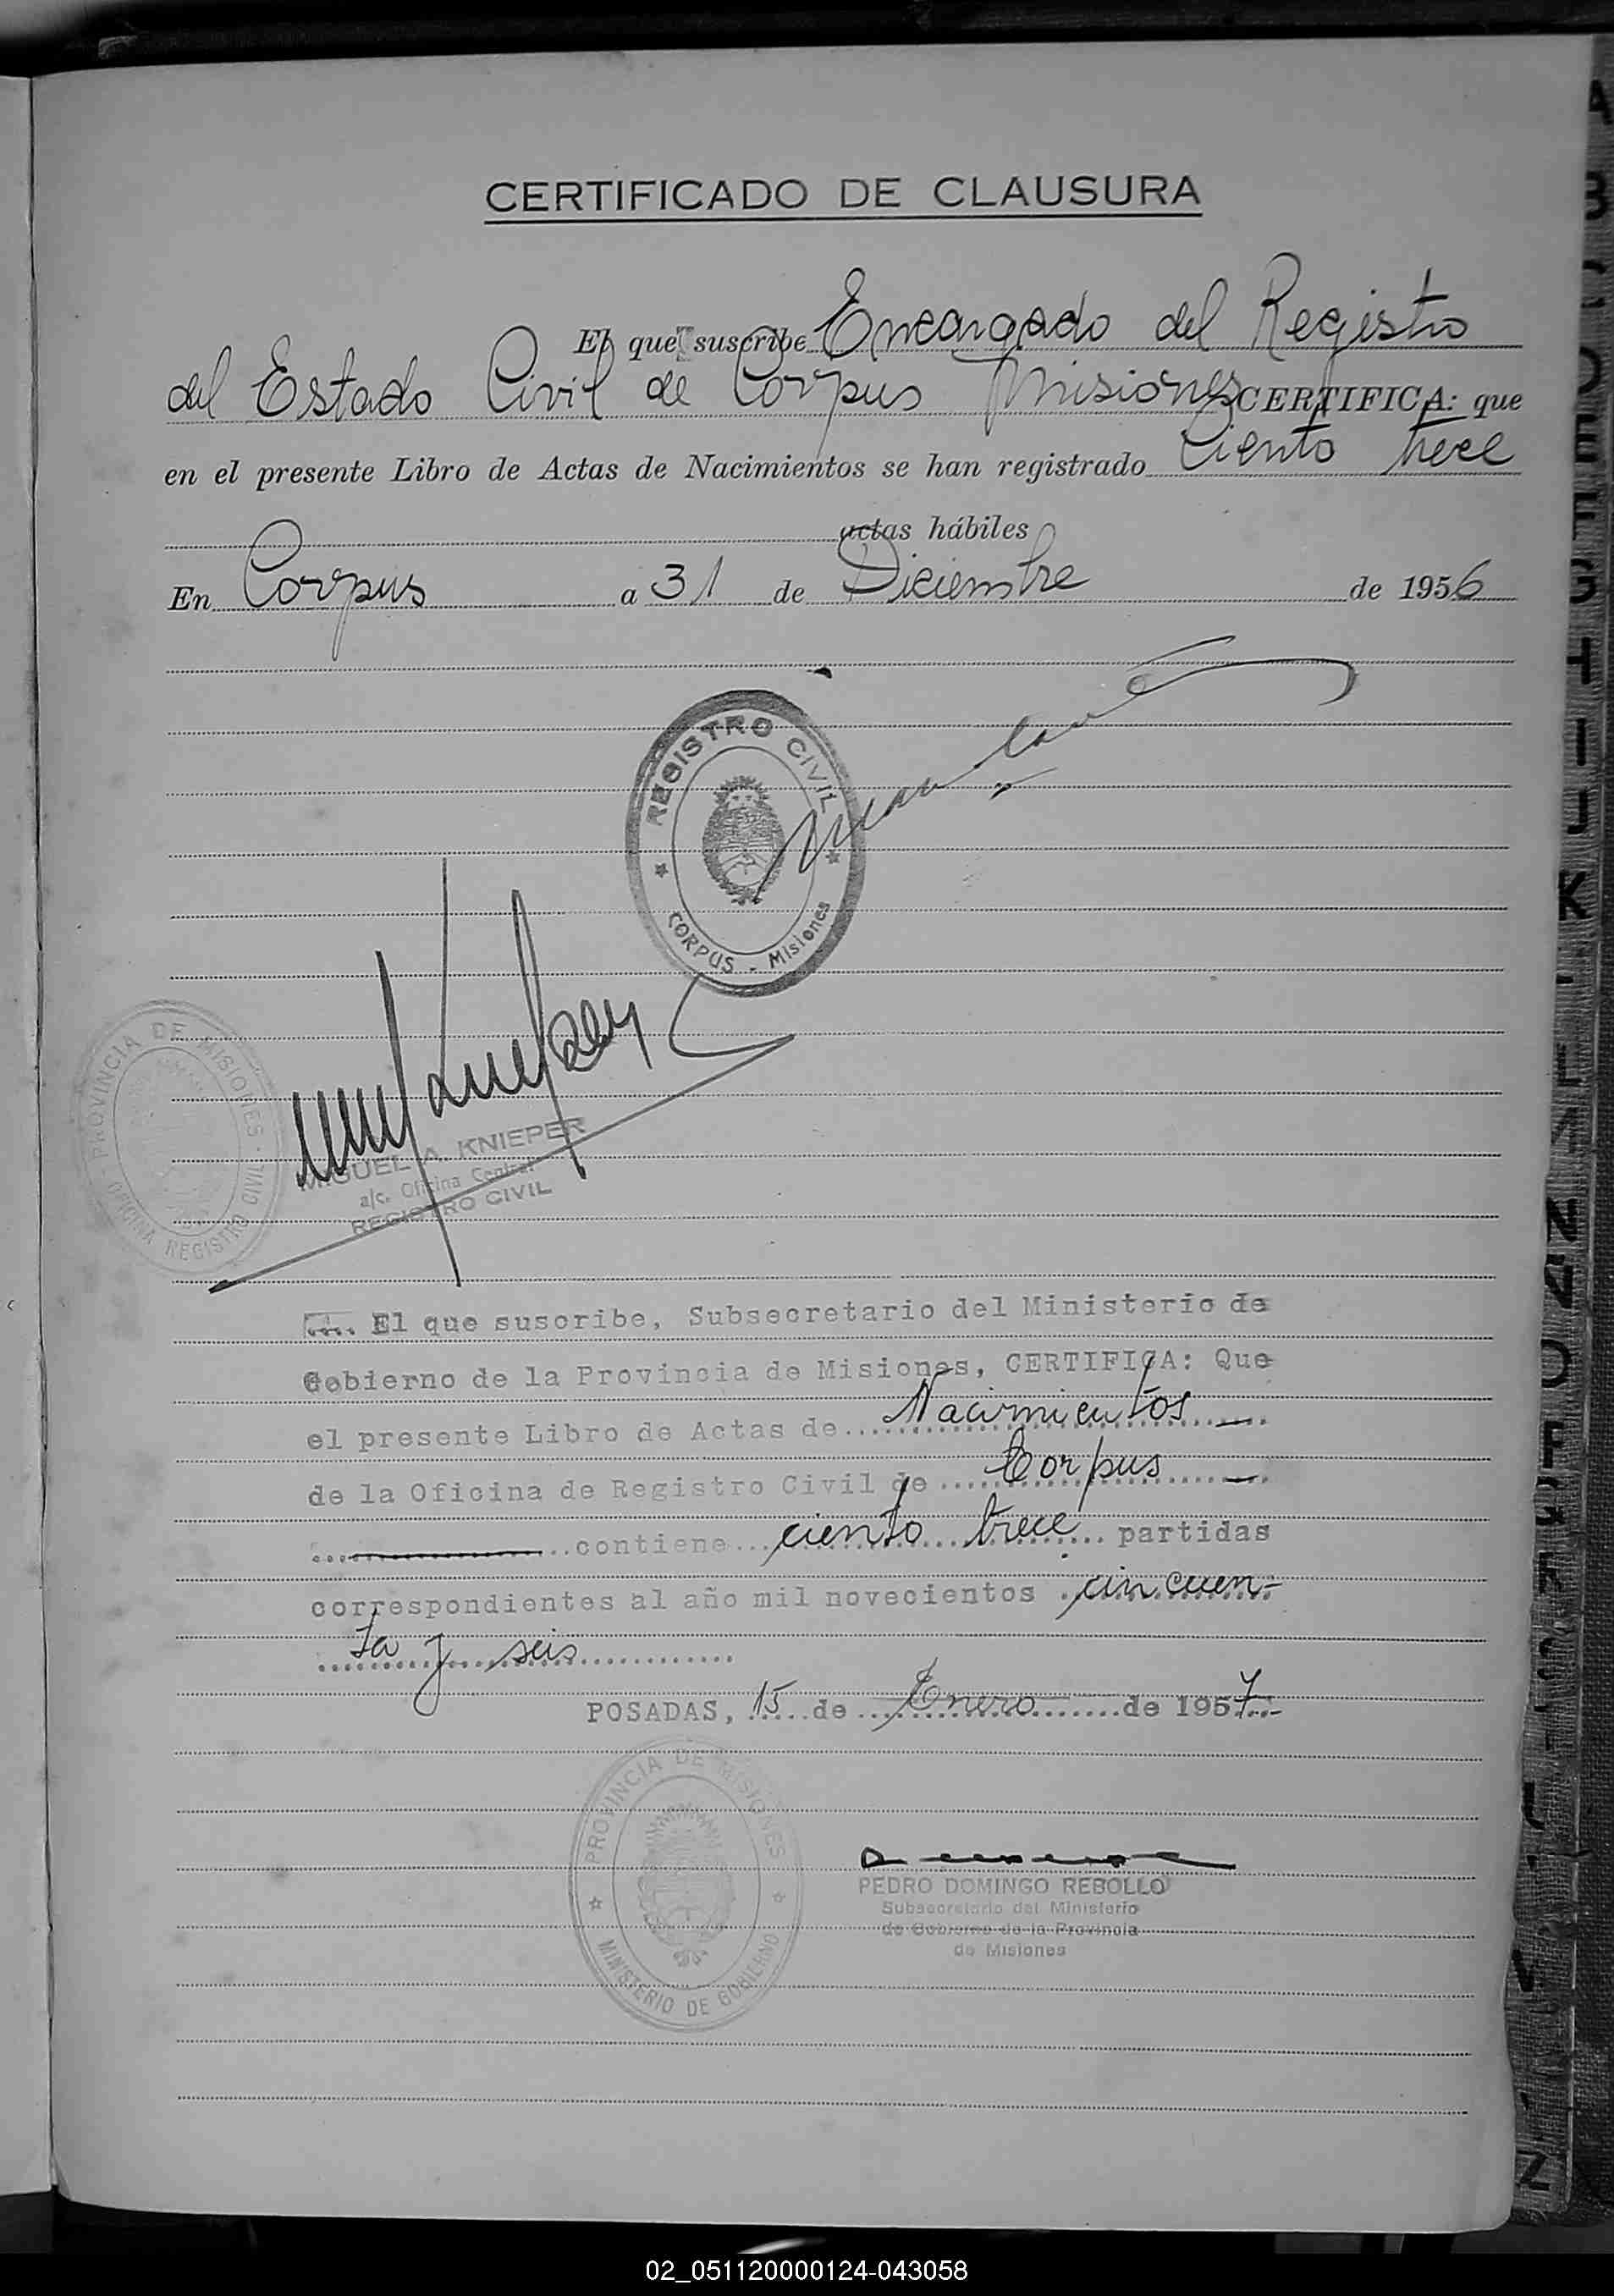 CERTIFICADO DE CLAUSURA
El que suscribe Encargado del Registro
del Estado Civil de Corpus Misiones CERTIFICA: que
en el presente Libro de Actas de Nacimientos se han registrado Ciento trece
actas hábiles
En Corpus a 31 de Diciembre de 1956
REGISTRO CIVIL
CORPUS - Misiones
PROVINCIA DE MISIONES
OFICINA REGISTRO CIVIL
MIGUEL A. KNIEPER
a/c. Oficina Central
REGISTRO CIVIL
El que suscribe, Subsecretario del Ministerio de
Gobierno de la Provincia de Misiones, CERTIFICA: Que
el presente Libro de Actas de Nacimientos
de la Oficina de Registro Civil de Corpus
contiene ciento trece partidas
correspondientes al año mil novecientos cincuen-
ta y seis
POSADAS, 15 de Enero de 1957
PROVINCIA DE MISIONES
MINISTERIO DE GOBIERNO
PEDRO DOMINGO REBOLLO
Subsecretario del Ministerio
de Gobierno de la Provincia
de Misiones
02_051120000124-043058